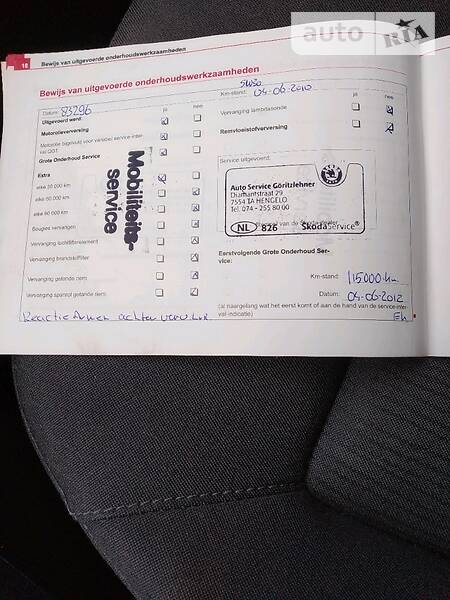 auto RIA
18 Bewijs van uitgevoerde onderhoudswerkzaamheden
Bewijs van uitgevoerde onderhoudswerkzaamheden
Datum: 83296
ja nee
Uitgevoerd werd:
Motorolieverversing
Motorolie bijgevuld voor variabel service-inter-
val QG1
Grote Onderhoud Service
Extra
elke 30 000 km
elke 60 000 km
elke 90 000 km
Bougies vervangen
Vervanging luchtfilterelement
Vervanging brandstoffilter
Vervanging getande riem
Vervanging spanrol getande riem
Mobiliteits-
service
5W30
Km-stand: 04-06-2010
ja nee
Vervanging lambdasonde
Remvloeistofverversing
Service uitgevoerd:
Auto Service Göritzlehner
Diamantstraat 29
7554 TA HENGELO
Tel. 074 - 255 80 00
NL 826 ŠkodaService®
Eerstvolgende Grote Onderhoud Ser-
vice:
Km-stand: 115000 km
Datum: 04-06-2012
(al naargelang wat het eerst komt of aan de hand van de service-inter-
val-indicatie)
Reactie Armen achter verv. L+R